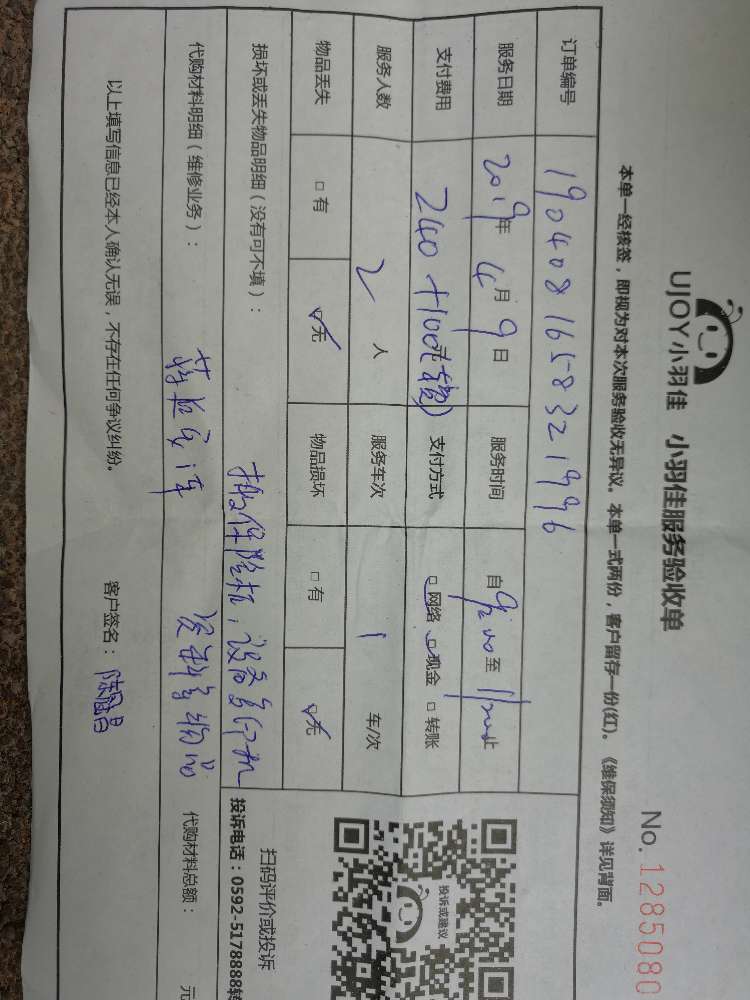 UJOY小羽佳 小羽佳服务验收单
No. 1285080
本单一经核签，即视为对本次服务验收无异议。本单一式两份，客户留存一份(红)。《维保须知》详见背面。
订单编号 1904081658321996
服务日期 2019年4月9日 服务时间 自9:00至11:00止
支付费用 240+100元 支付方式 □网络 □现金 □转账
服务人数 2人 服务车次 1 车/次
物品丢失 □有 □无 物品损坏 □有 □无
损坏或丢失物品明细（没有可不填）：
代购材料明细（维修业务）： 代购材料总额： 元
以上填写信息已经本人确认无误，不存在任何争议纠纷。 客户签名：
投诉或建议
扫码评价或投诉
投诉电话：0592-5178888转